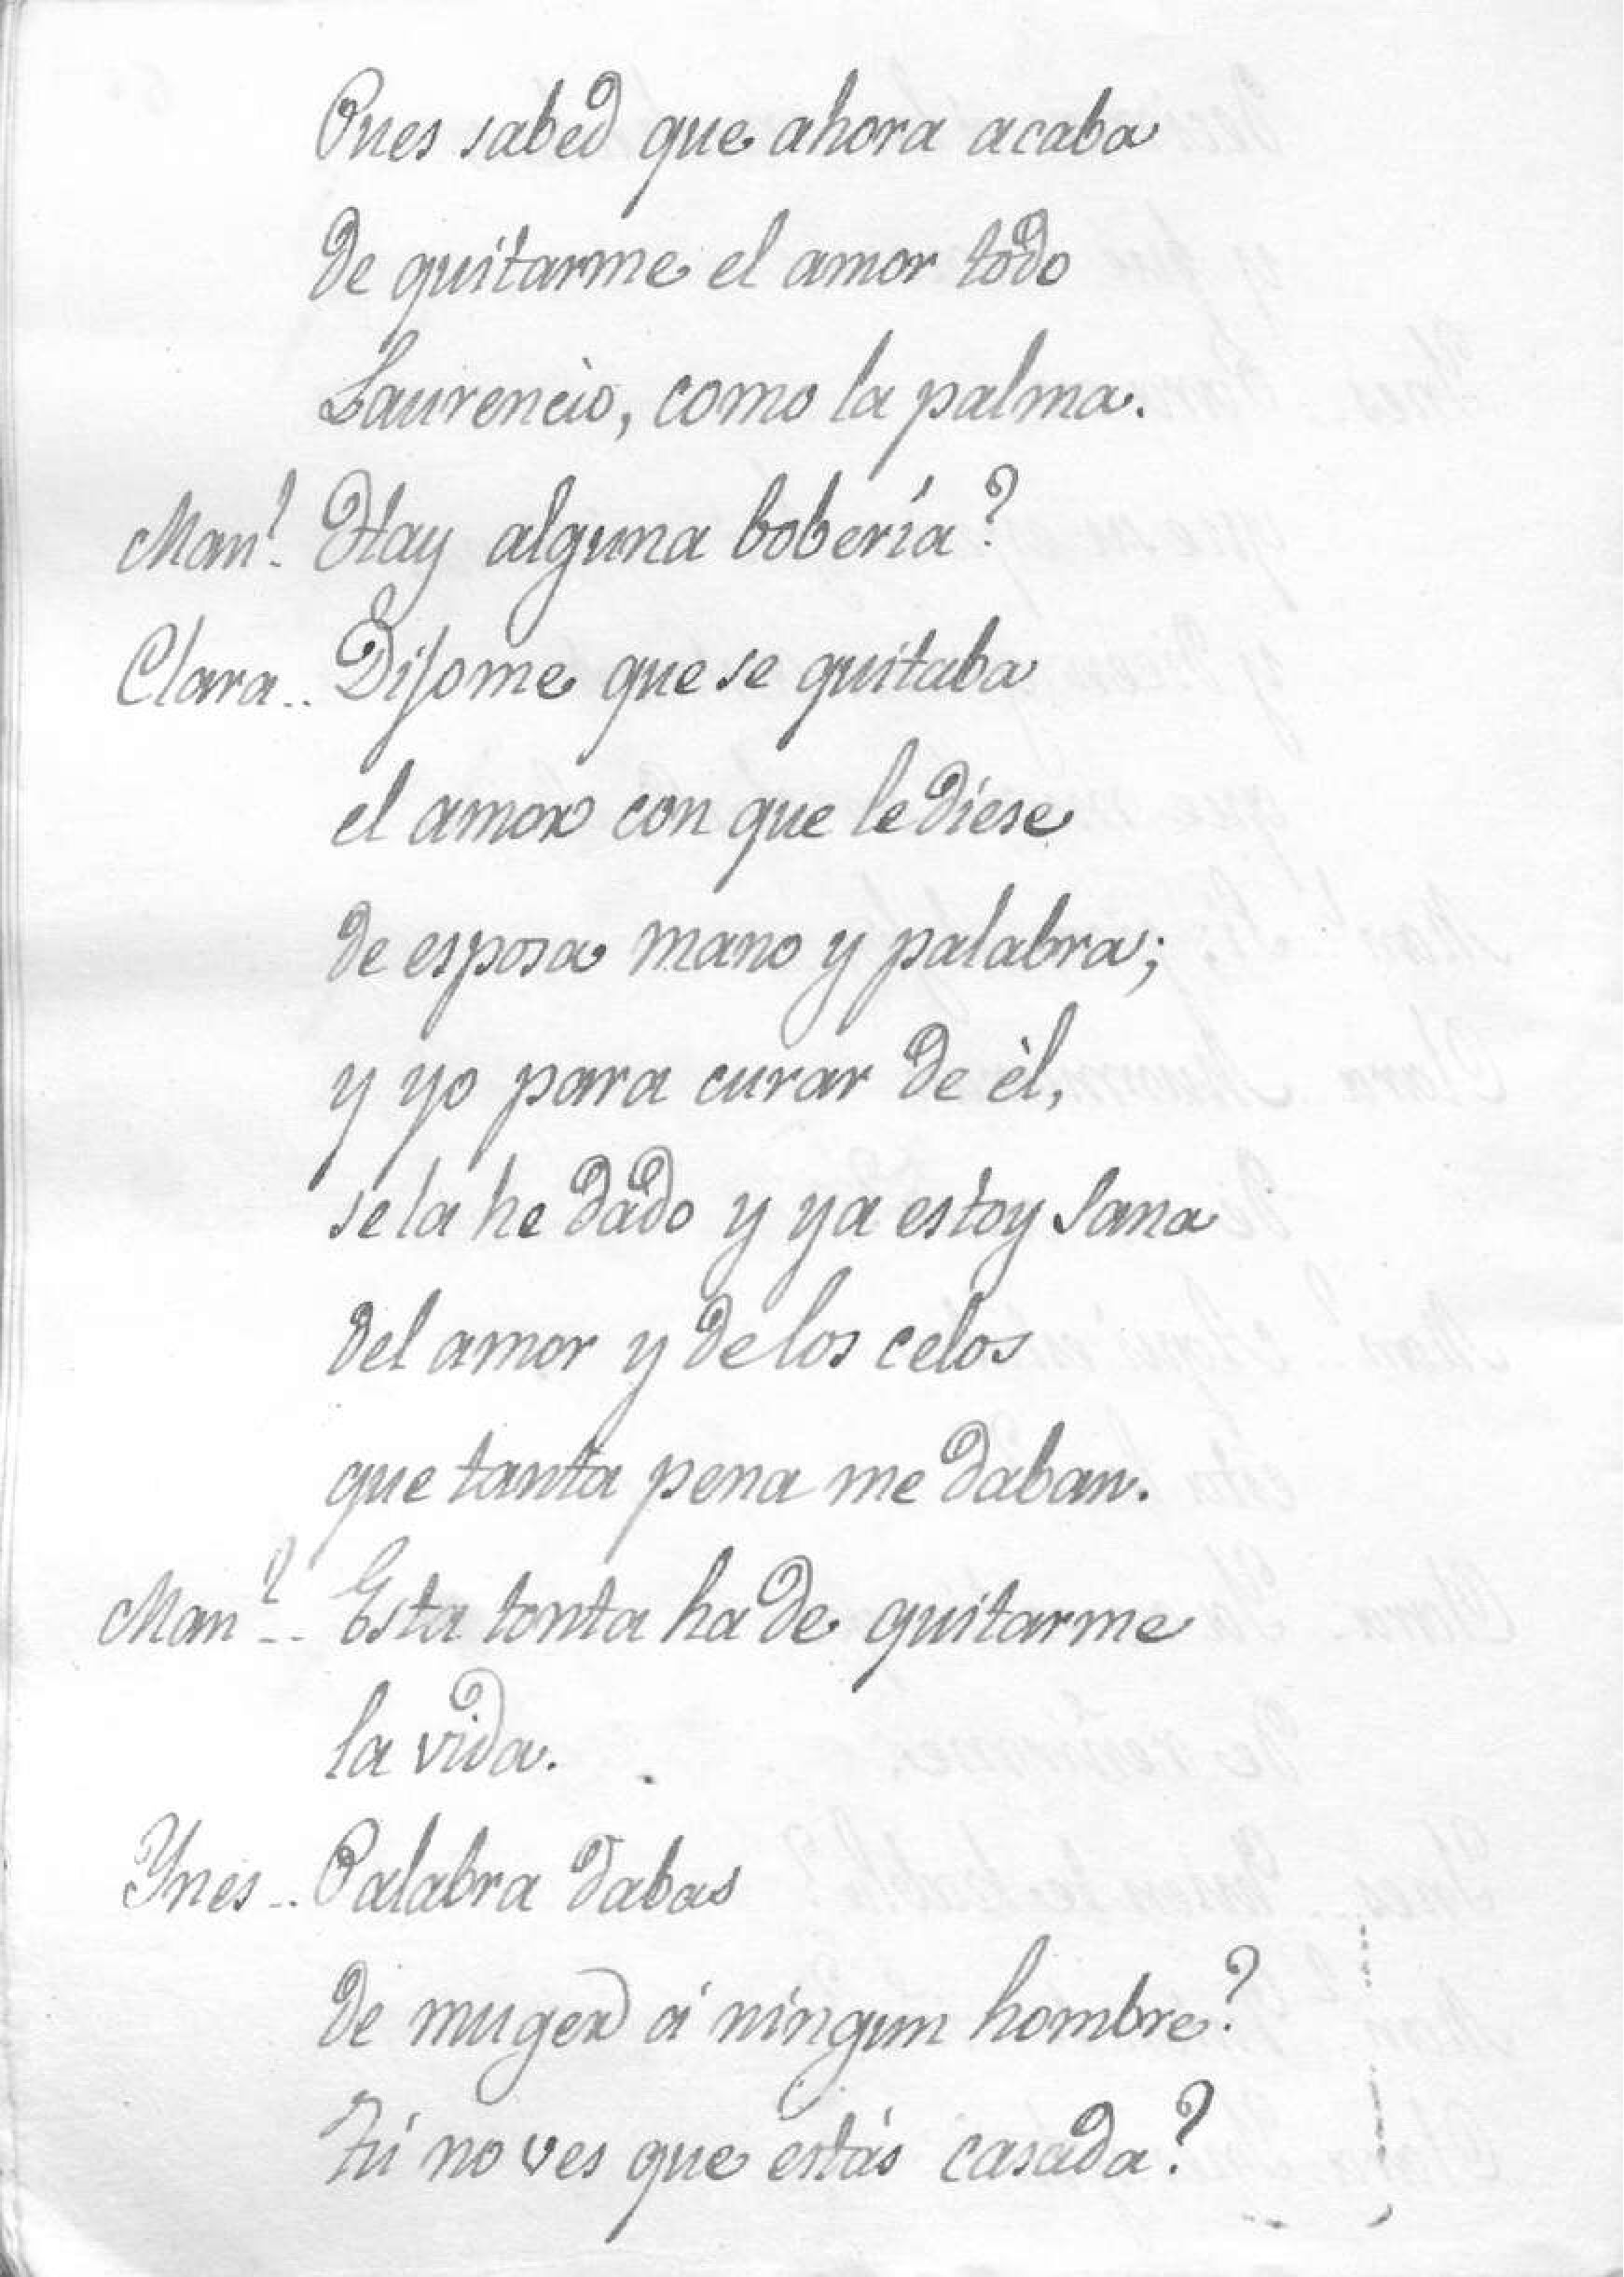 Pues sabed que ahora acaba
de quitarme el amor todo
Laurencio, como la palma.
Man.l Hay alguna bobería?
Clara.. Dijome que se quitaba
el amor con que le diese
de esposa mano y palabra;
y yo para curar de èl,
se la he dado y ya estoy sana
del amor y de los celos
que tanta pena me daban.
Man.l.. Esta tonta ha de quitarme
la vida.
Ynes.. Palabra dabas
de muger á ningun hombre?
Tú no ves que estás casada?